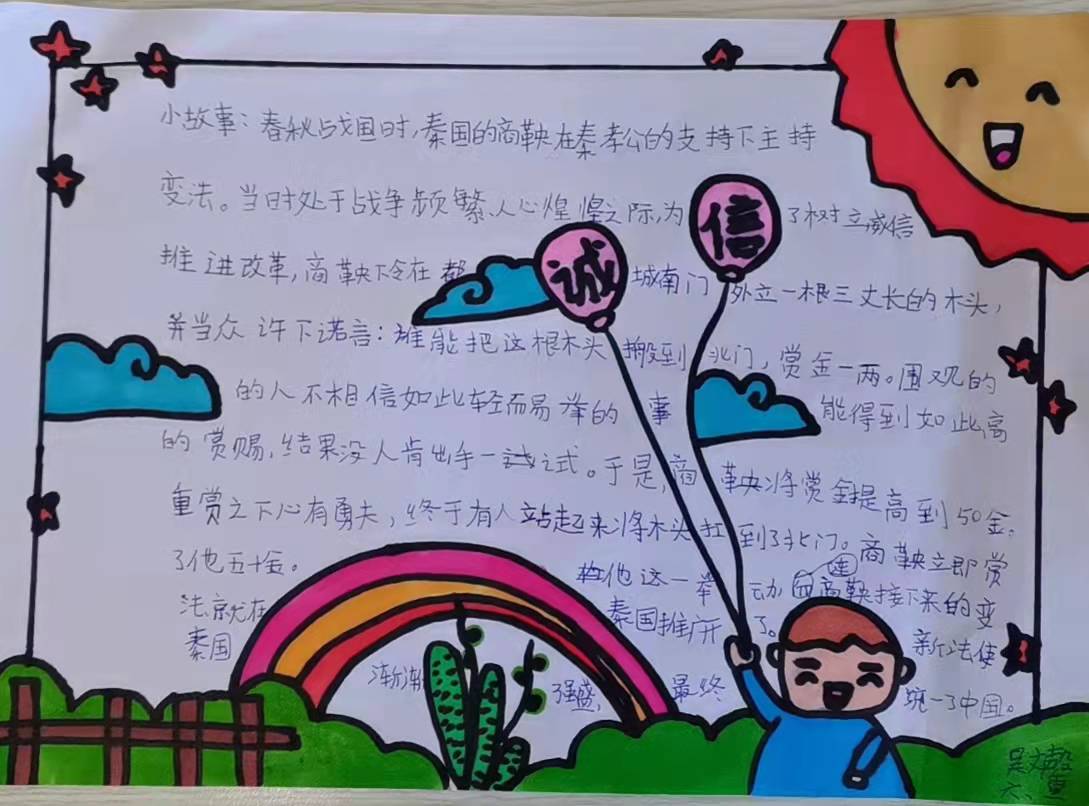 小故事：春秋战国时，秦国的商鞅在秦孝公的支持下主持
变法。当时处于战争频繁、人心煌煌之际，为了树立威信
推进改革，商鞅下令在都城南门外立一根三丈长的木头，
诚
信
并当众许下诺言：谁能把这根木头搬到北门，赏金一两。围观的
的人不相信如此轻而易举的事能得到如此高
的赏赐，结果没人肯出手一试。于是，商鞅将赏金提高到50金。
重赏之下心有勇夫，终于有人站起来将木头扛到了北门。商鞅立即赏
了他五十金。
他这一举动，商鞅接下来的变
法就在秦国推广开了。新法使
秦国渐渐强盛，最终统一了中国。
吴文
六、